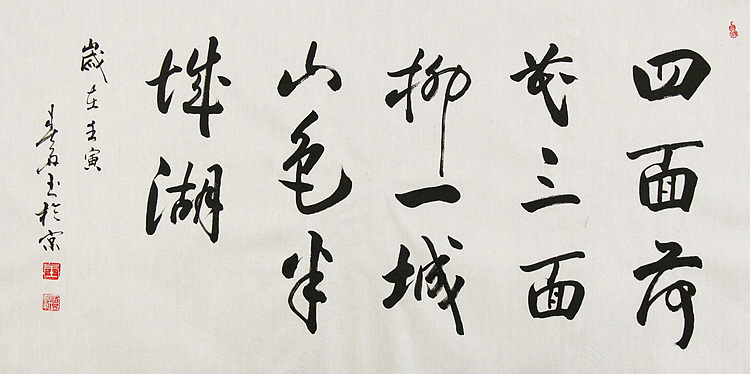 四面荷
花三面
柳一城
山色半
城湖
歲在壬寅
春 於京